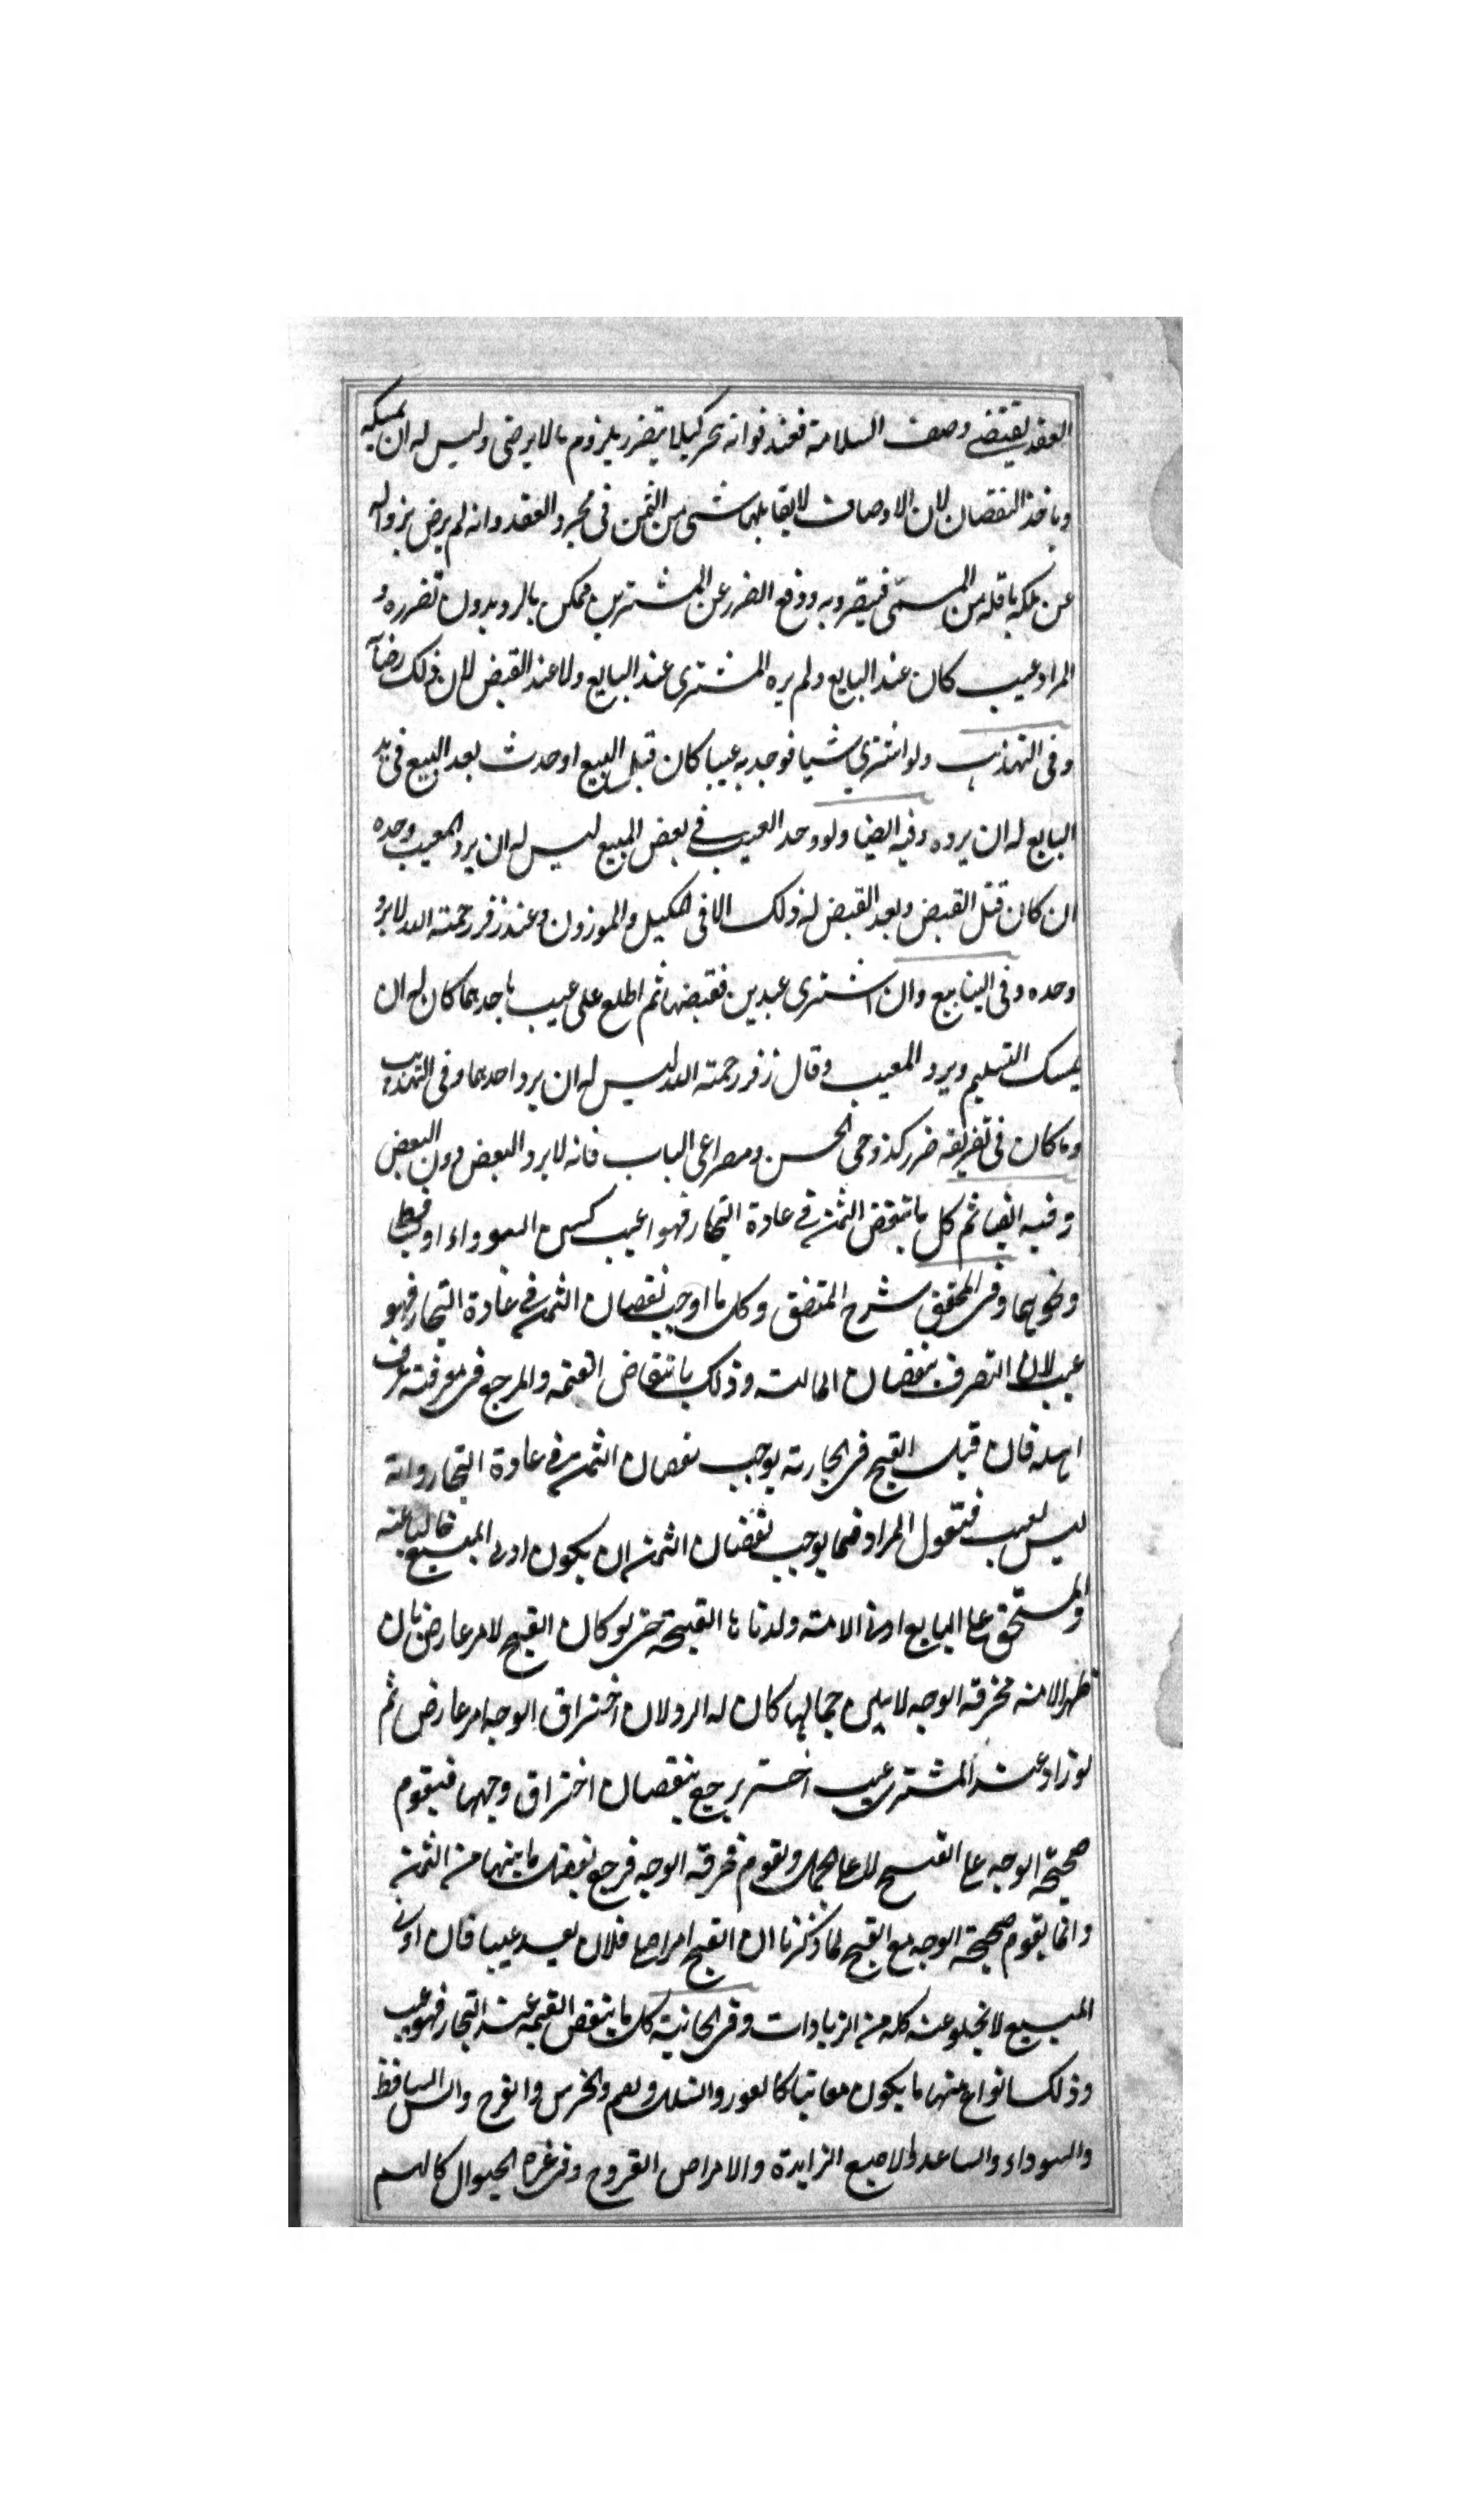 العقد يقتضے وصف السلامة فعند فواته يخير كيلا يتضرر بلزوم ما لا يرضى وليس له ان يمسكه
وياخذ النقصان لان الاوصاف لا يقابلها شى من الثمن فى مجرد العقد وانه لم يرض بزواله
عن ملكه باقل من المسمّى فيتضرر به ودفع الضرر عن المشترى ممكن بالرد بدون تضرره و
المراد عيب كان عند البايع ولم يره المشترى عند البايع ولا عند القبض لان ذلك رضاً
وفى التهذيب ولو اشترى شيا فوجد به عيبا كان قبل البيع او حدث بعد البيع فى يد
البايع له ان يرده وفيه ايضا ولو وجد العيب فے بعض المبيع ليس له ان يرد المعيب وحده
ان كان قبل القبض وبعد القبض له ذلك الا فى المكيل والموزون وعند زفر رحمة الله لا يرد
وحده وفى الينابيع وان اشترى عبدين فقبضهما ثم اطلع على عيب باحدهما كان له ان
يمسك التسليم ويرد المعيب وقال زفر رحمة الله ليس له ان يرد احدهما وفى التهذيب
وما كان فى تفريقه ضرر كذوجى الحسن ومصراعى الباب فانه لا يرد البعض دون البعض
وفيه ايضا ثم كل ما ينقض الثمن فے عادة التجار فهو عيب كسن السوداء او
ونحوهما وفى المحقق شرح المتفق وكل ما اوجب نقصان الثمن فے عادة التجار فهو
عيب لان التصرف بنقصان المالية وذلك بانتقاض القيمة والمرجع فى معرفته عرف
اهله فان قيل القبح فى الجارية يوجب نقصان الثمن فے عادة التجار وانه
ليس بعيب فنقول المراد مما يوجب نقصان الثمن ان يكون ادنى المبيع خاليا عنه
والمستحق على البايع ادنى الامة ولدناها القبيحة حتى لو كان القبح لامر عارض بان
ظهر الامة محترقة الوجه لا يبين جمالها كان له الرد لان احتراق الوجه امر عارض ثم
لو زاد عند المشترى عيب اخر يرجع بنقصان احتراق وجهها فيقوم
صحيحة الوجه على القبح لا على الجمال ويقوم محرقة الوجه فرجع بفضل ما بينهما من الثمن
وانما يقوم صحيحة الوجه مع القبح لما ذكرنا ان القبح امر اصلى فلا يعد عيبا فان ادنى
المبيع لا يخلو عنه كله من الزيادات وفى الخانية كل ما ينقض القيمة عند التجار فهو عيب
وذلك انواع منها ما يكون معاينا كالعور والشلل والصم والخرس والقرح والسن الساقط
والسوداء والساعد والاصبع الزايدة والامراض القروح وفى غيره الحيوان كالبسم